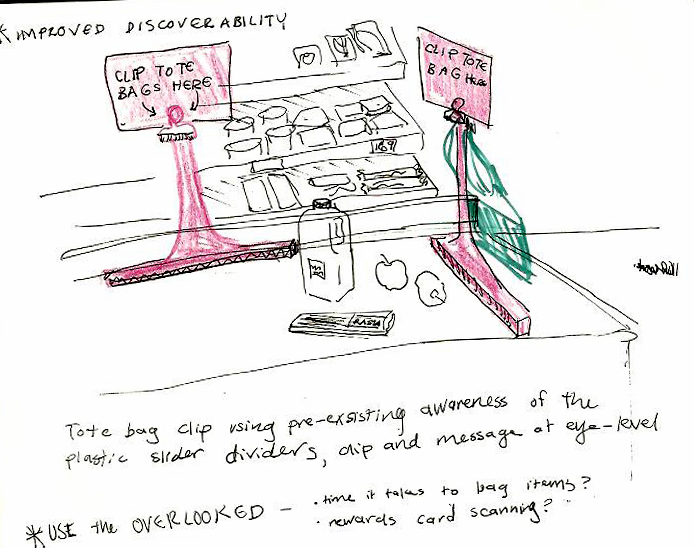 * IMPROVED DISCOVERABILITY
CLIP TOTE
BAGS HERE
CLIP TOTE
BAG HERE
169
PASTA
Tote bag clip using pre-exsisting awareness of the
plastic slider dividers, clip and message at eye-level
* USE the OVERLOOKED - · time it takes to bag items?
· rewards card scanning?